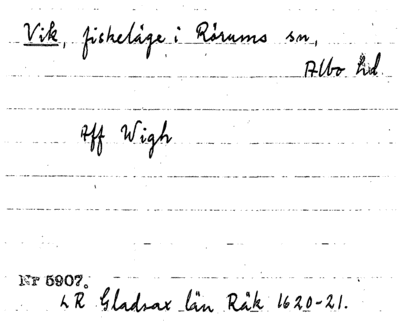 Vik, fiskeläge i Rörums sn,
Albo hd.
Aff Wigh
Nr 5907.
LR Gladsax län Räk 1620-21.